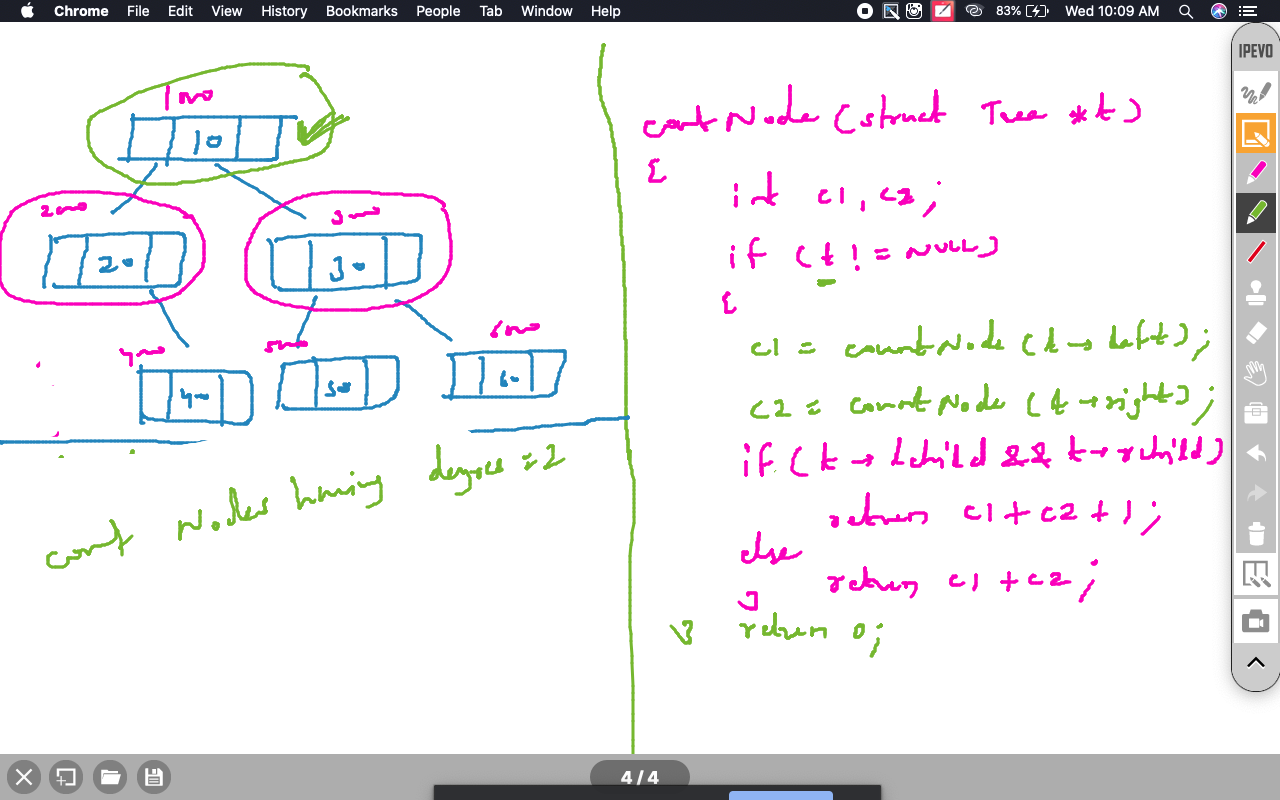 Chrome File Edit View History Bookmarks People Tab Window Help 83% Wed 10:09 AM
IPEVO
1000
10
2000
3000
20
30
4000
5000
6000
40
50
60
count Nodes having degree = 2
countNode (struct Tree *t)
{
int c1, c2;
if (t != NULL)
{
c1 = countNode (t → left);
c2 = countNode (t → right);
if (t → lchild && t → rchild)
return c1 + c2 + 1;
else
return c1 + c2;
}
} return 0;
4 / 4